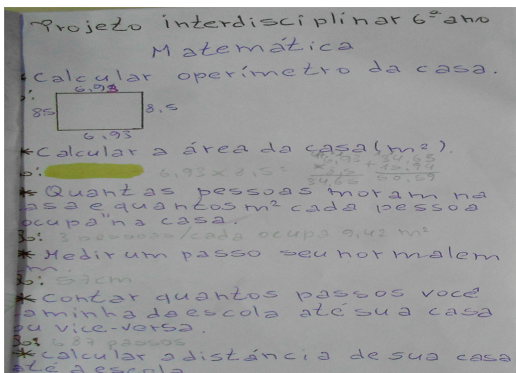 Projeto interdisciplinar 6º ano
Matemática
*Calcular operímetro da casa.
6,93
85
8,5
6,93
*Calcular a área da casa (m²).
6,93 x 8,5=
* Quantas pessoas moram na
asa e quantos m² cada pessoa
ocupa na casa.
3 pessoas/cada ocupa 9,42 m²
* Medir um passo seu normal em
m.
57cm
* Contar quantos passos você
aminha da escola até sua casa
ou vice-versa.
687 passos
*Calcular a distância de sua casa
até a escola